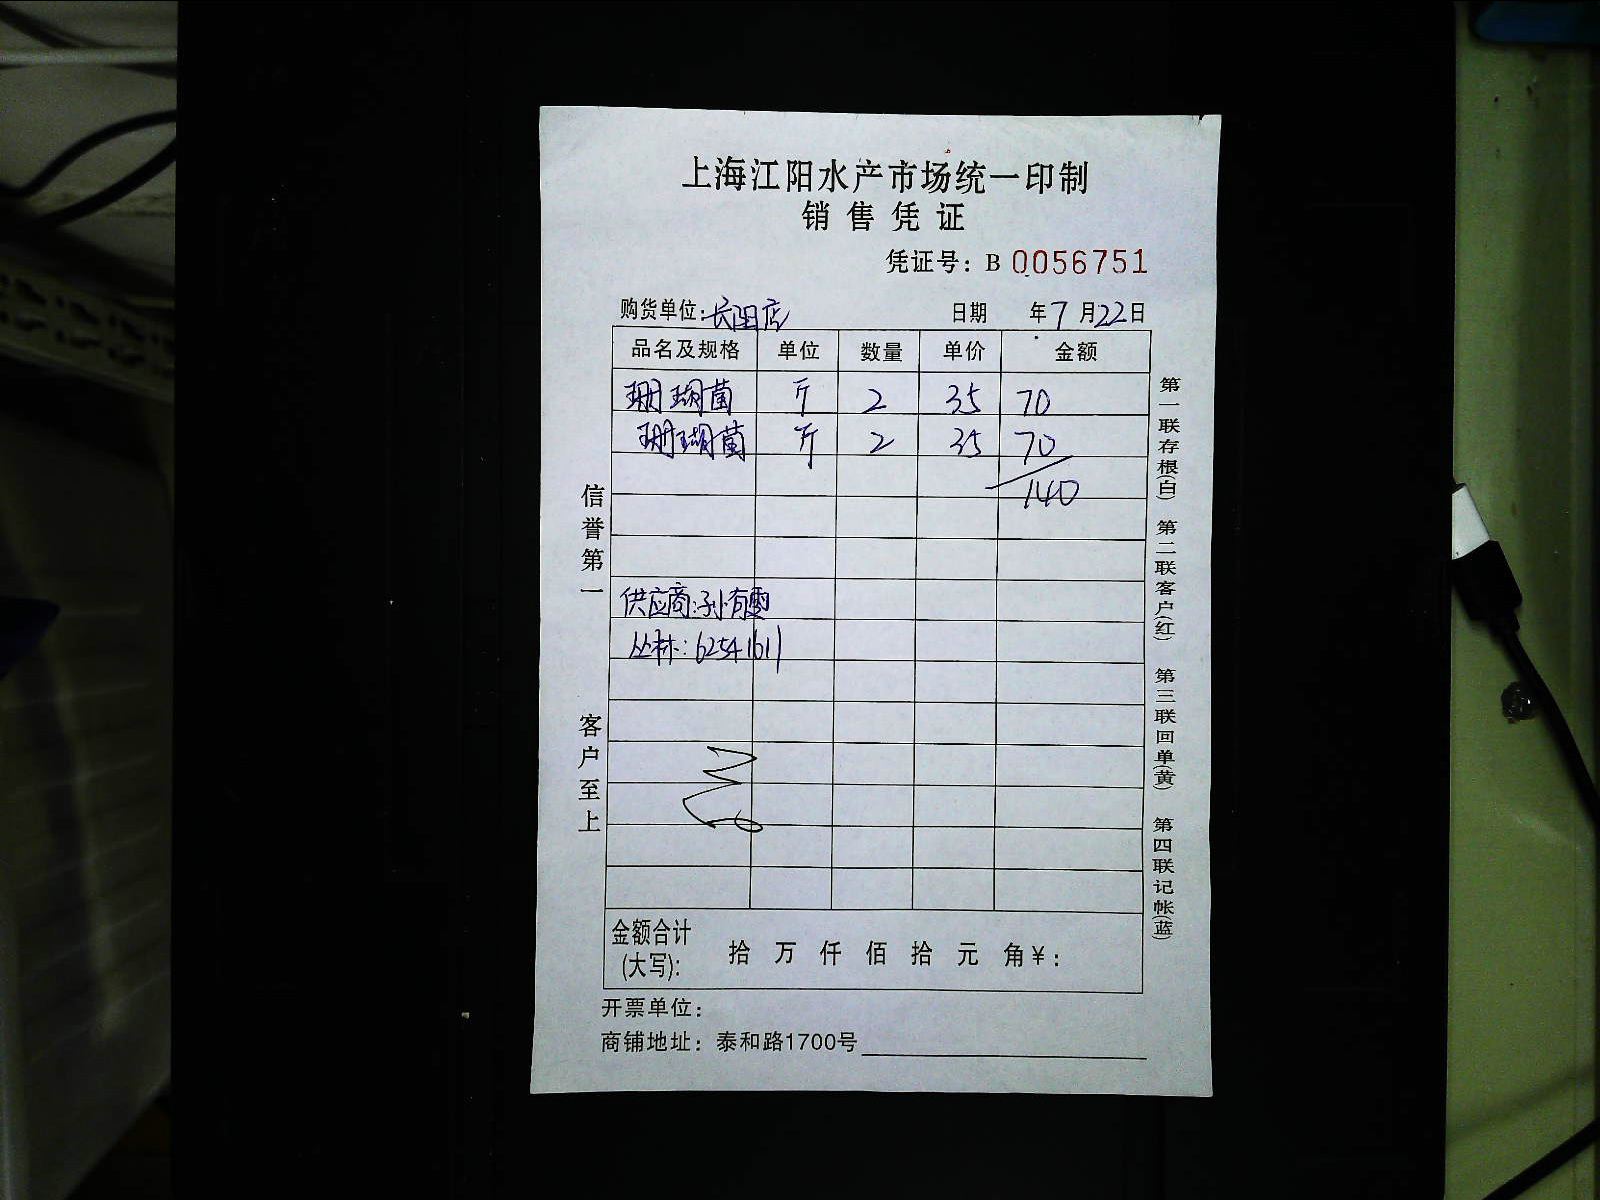 上海江阳水产市场统一印制
销售凭证
凭证号：B 0056751
购货单位：长阳店 日期 年7月22日
品名及规格 单位 数量 单价 金额
珊瑚菌 斤 2 35 70
珊瑚菌 斤 2 35 70
140
供应商：孙有雷
丛林：62541611
信誉第一
客户至上
第一联存根(白) 第二联客户(红) 第三联回单(黄) 第四联记帐(蓝)
金额合计(大写)： 拾 万 仟 佰 拾 元 角¥：
开票单位：
商铺地址：泰和路1700号